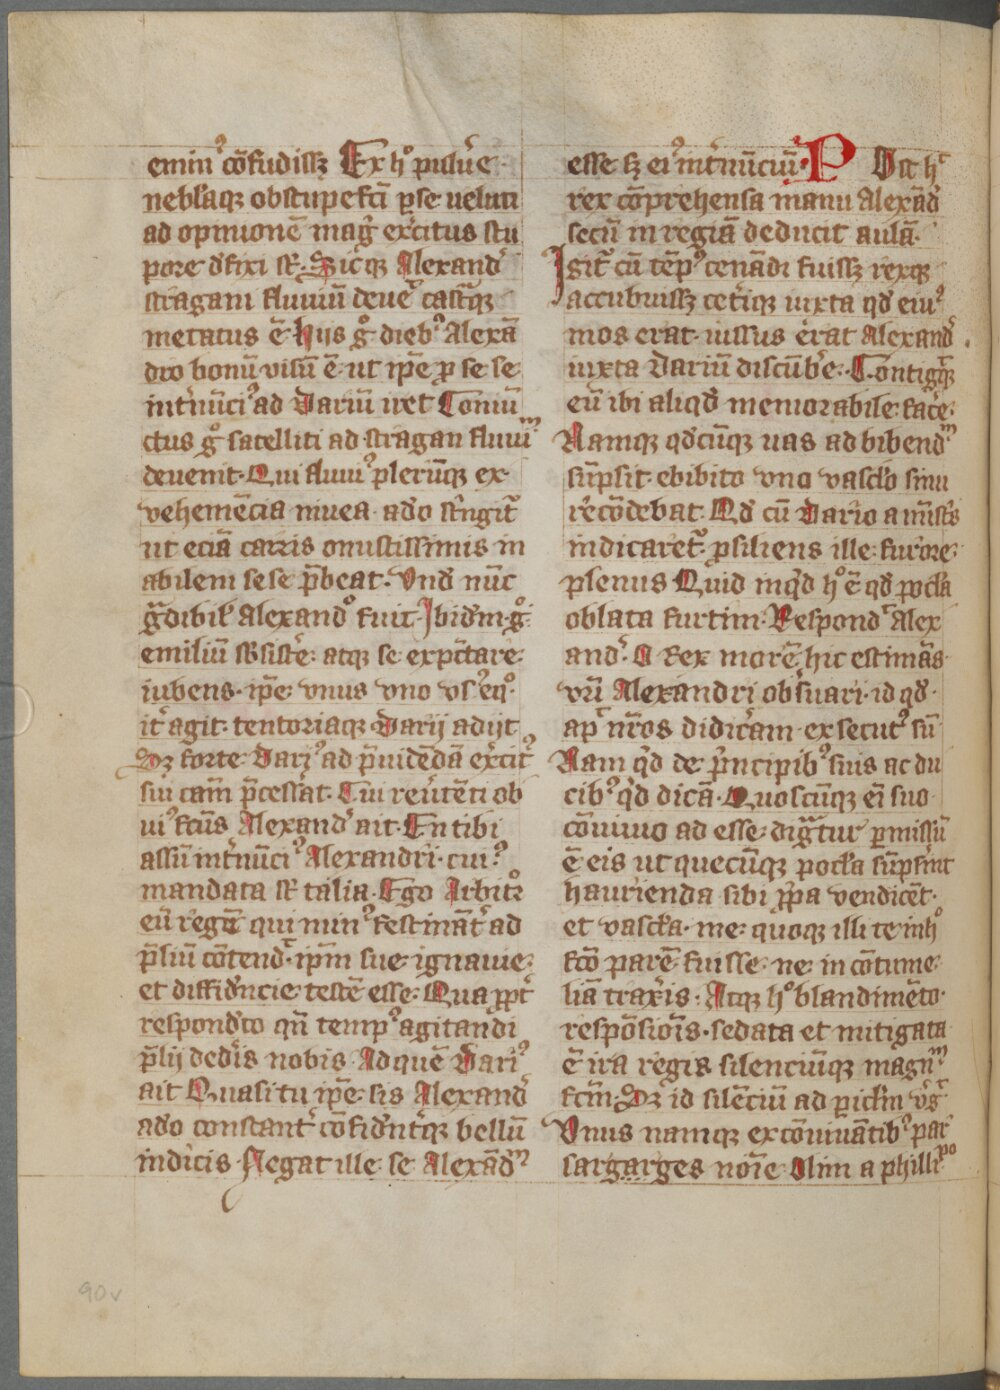 eminꝰ cōfudissꝫ Ex hº pulu̾e
neblaqꝫ obstupefcī ꝑ se ueluti
ad opinionē mag̾ ex̾citus stu
pore dfixi sr̄. Sicqꝫ Alexand̾
stragam fluuiū deue̾ castq̾ꝫ
metatus ē hijs gº diebꝰ Alexā
dro bonū visū ē ut ip̄e ꝓ se se
int̾nūciꝰ ad Dariū iret Comū
ctus gº satelliti ad stragan fluuiᵐ
deuenit. Qui fluuiꝰ plerūqꝫ ex
vehemēcia niuea ado st̾ngit̾
ut eciā carris onustissimis in
abilem sese p̄beat. Vnd̾ nūc
g̾dibil̾ Alexandº fuit. Ibidm gº
emiliū sb̾sist̾e atqꝫ se expc̄tare
iubens. ip̄e vnus vno vs̾ eqº
it̾ agit. tentoriaqꝫ Darij adijt
Sꝫ forte Dariꝰ ad p̄uidēdā ex̾citꝰ
sui cam̄ p̄cess̾at. Cui reu̾tēti ob
uiꝰ fcūs Alexand̾ ait. En tibi
assū int̾nūciꝰ Alexandri. cuiꝰ
mandata sr̄ talia. Ego Arbitoꝛ
eū regē qui minꝰ festināt̾ ad
p̄liū cōtend̾. ip̄m sue ignauie
et diffid̾ncie testē esse. Qua ꝓpt̾
respond̾to qn̄ tempꝰ agitandi
p̄lij ded̾is nobis Ad quē Dariꝰ
ait Quasi tu ip̄e sis Alexand̾
ado constant̾ cōfid̾nt̾qꝫ bellū
indicis. Negat ille se Alexād̾ᵐ
esse sꝫ eiꝰ int̾nūciū. Post hᶜ
rex cōprehensa manu Alexād̾
secū in regiā deducit aulā.
Igit̾ cū tēpꝰ cenādi fuissꝫ rexqꝫ
accubuissꝫ cet̾iqꝫ iuxta qd̾ eiuꝰ
mos erat. iussus erat Alexand̾
iuxta Dariū discūb̾e. Contigq̾ꝫ
eū ibi aliqd̾ memorabile fac̾e
Namqꝫ qd̾cūqꝫ uas ad bibend̾ᵐ
sūpsit. ebibito vno vasclo sinu
recōdebat Qd̾ cū Dario a mīst̾s
indicaret̾. ꝓsiliens ille furore
plenus Quid inqd̾ hº ē qd̾ pocla
oblata furtim. Respond̾ Alex
and̾. O Rex morē hic estimās
vrū Alexandri obs̾uari. id qd̾
ap̾ nr̄os didic̾am. exsecutꝰ sū
Nam qd̾ de p̄ncipibꝰ suis ac du
cibꝰ qd̾ dicā. Quoscūqꝫ ei̾ suo
cōuiuo ad esse digt̾ur ꝑmissū
ē eis ut quecūqꝫ pocla sūps̾int
haurienda sibi ꝓp̄a vendicēt.
et vascla. me quoqꝫ illi te in hº
fcō parē fuisse ne in cōtume
liā traxeris. Atqꝫ hº blandimēto
respōsiōis. sedata et mitigata
ē ira regis silenciūqꝫ magnᵐ
fcm̄. Sꝫ id silēciū ad ꝑiclm v̾s̾
Vnus namqꝫ ex cōuiuātibꝰ par
sargarges noīe Olim a philliᵖº
90v